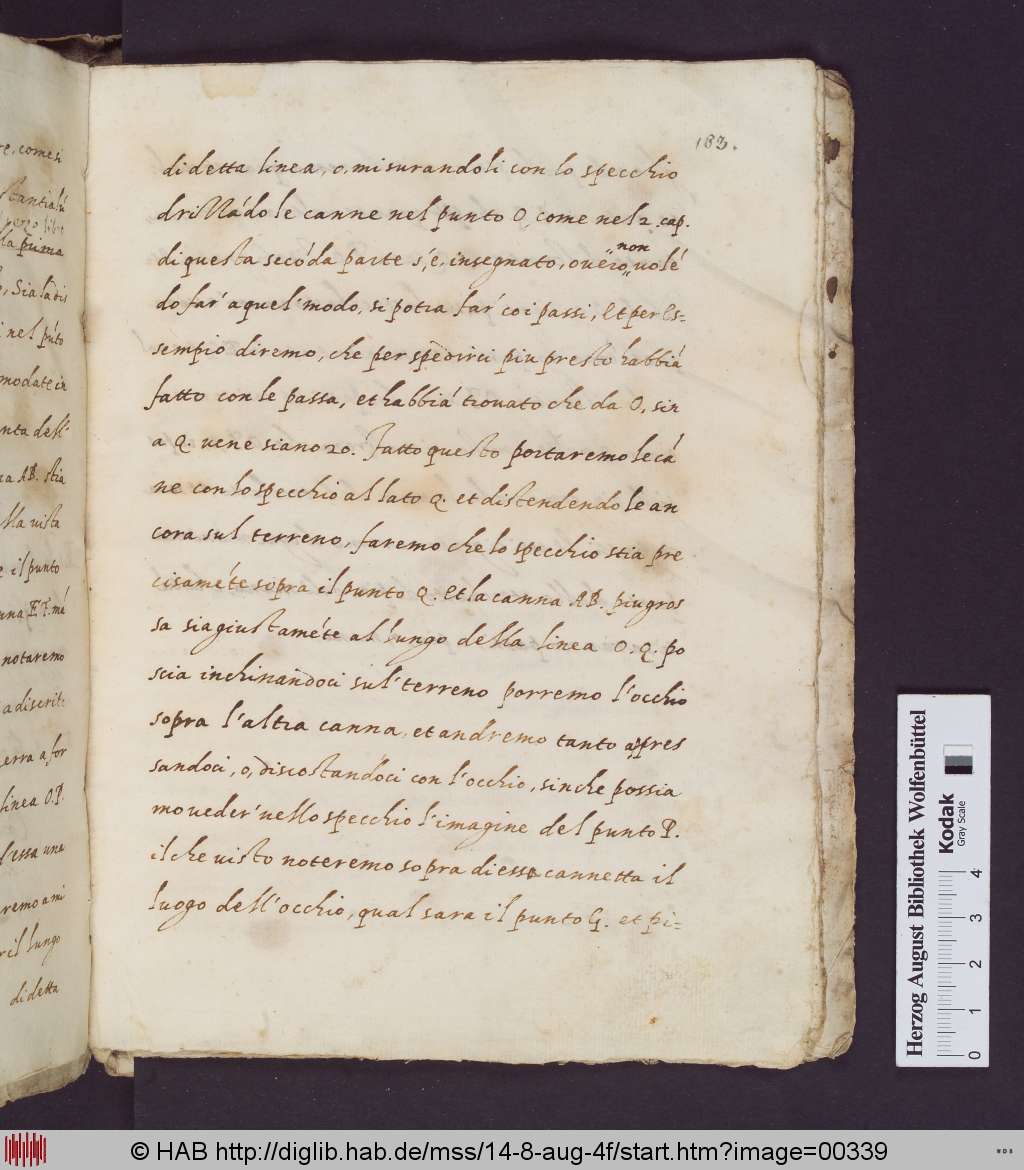 183.
di detta linea, o, misurandoli con lo specchio
drizzádo le canne nel punto O, come nel 2. cap.
di questa secóda parte s'è, insegnato, ouero, non uolé
do far' a quel' modo, si potra far' co i passi, Et per Es=
sempio diremo, che per spedirci piu presto habbiá
fatto con le passa, et habbiá trouato che da O, sin
a Q. uene siano 20. Fatto questo portaremo le cá
ne con lo specchio al lato Q. et distendendo le an
cora sul terreno, faremo che lo specchio stia pre
cisaméte sopra il punto Q. Et la canna AB. piu gros
sa sia giustaméte al lungo della linea O.Q. po
scia inchinandoci sul' terreno porremo l'occhio
sopra l'altra canna, et andremo tanto apres
sandoci, o, discostandoci con l'occhio, sin che possia
mo ueder' nello specchio l'imagine del punto P.
il che uisto noteremo sopra di essa cannetta il
luogo dell'occhio, qual sara il punto G. et pi=
re, come si
la prima
, Sia la dis
nel púto
modate in
nta dell'
AB. stia
lla uista
e il punto
una EF. mé
notaremo
a discrit
erra a, for
linea O.P.
essa una
remo a mi
r il lungo
di detta
Herzog August Bibliothek Wolfenbüttel
Kodak
Gray Scale
0 1 2 3 4
© HAB http://diglib.hab.de/mss/14-8-aug-4f/start.htm?image=00339